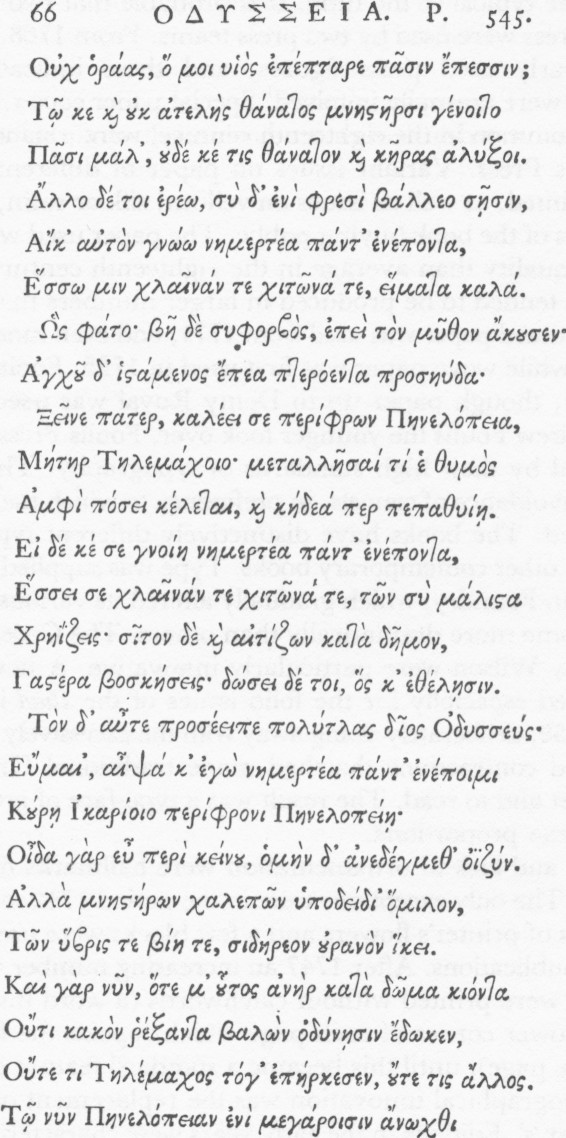 66 ΟΔΥΣΣΕΙΑ. Ρ. 545.
Οὐχ ὁράας, ὅ μοι υἱὸς ἐπέπταρε πᾶσιν ἔπεσσιν;
Τῷ κε ϗ ȣκ ἀτελὴς θάναϊος μνηςῆρσι γένοιτο
Πᾶσι μάλ', ȣδέ κέ τις θάνατον ϗ κῆρας ἀλύξοι.
Ἄλλο δέ τοι ἐρέω, σὺ δ' ἐνὶ φρεσὶ βάλλεο σῇσιν,
Αἴκ' αὐτὸν γνώω νημερτέα παντ' ἐνέποντα,
Ἕσσω μιν χλαῖνάν τε χιτῶνά τε, εἵματα καλά.
Ὣς φάτο· βῆ δὲ συφορβὸς, ἐπεὶ τὸν μῦθον ἄκουσεν·
Ἀγχȣ͂ δ' ἱςάμενος ἔπεα πτερόεντα προσηύδα·
Ξεῖνε πάτερ, καλέει σε περίφρων Πηνελόπεια,
Μήτηρ Τηλεμάχοιο· μεταλλῆσαί τί ἑ θυμὸς
Ἀμφὶ πόσει κέλεται, ϗ κήδεά περ πεπαθυίῃ.
Εἰ δέ κέ σε γνοίη νημερτέα παντ' ἐνέποντα,
Ἕσσει σε χλαῖνάν τε χιτῶνά τε, τῶν σὺ μάλιςα
Χρηΐζεις· σῖτον δὲ ϗ αἰτίζων κατὰ δῆμον,
Γαςέρα βοσκήσεις· δώσει δέ τοι, ὅς κ' ἐθέλησιν.
Τὸν δ' αὖτε προσέειπε πολύτλας δῖος Ὀδυσσεύς·
Εὔμαι', αἶψά κ' ἐγὼ νημερτέα πάντ' ἐνέποιμι
Κȣ́ρῃ Ἰκαρίοιο περίφρονι Πηνελοπείῃ·
Οἶδα γὰρ εὖ περὶ κείνȣ, ὁμὴν δ' ἀνεδέγμεθ' ὀϊζύν.
Ἀλλὰ μνηςήρων χαλεπῶν ὑποδείδι' ὅμιλον,
Τῶν ὕβρις τε βίη τε, σιδήρεον ȣ̓ρανὸν ἵκει.
Καὶ γὰρ νῦν, ὅτε μ' ȣ̔͂τος ἀνὴρ κατὰ δῶμα κιόντα
Οὔτι κακὸν ῥέξαντα βαλὼν ὀδύνησιν ἔδωκεν,
Οὔτε τι Τηλέμαχος τόγ' ἐπήρκεσεν, ȣ̓́τε τις ἄλλος.
Τῷ νῦν Πηνελόπειαν ἐνὶ μεγάροισιν ἄνωχθι